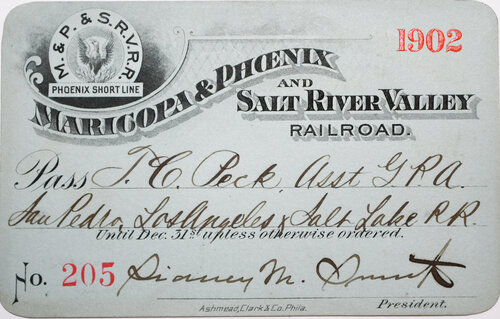 M. & P. & S.R.V.R.R.
PHOENIX SHORT LINE
1902
MARICOPA & PHOENIX
AND
SALT RIVER VALLEY
RAILROAD.
Pass T. C. Peck, Asst G.P.A.
San Pedro, Los Angeles & Salt Lake R.R.
Until Dec. 31st unless otherwise ordered.
No. 205 Sidney M.
President.
Ashmead, Clark & Co. Phila.